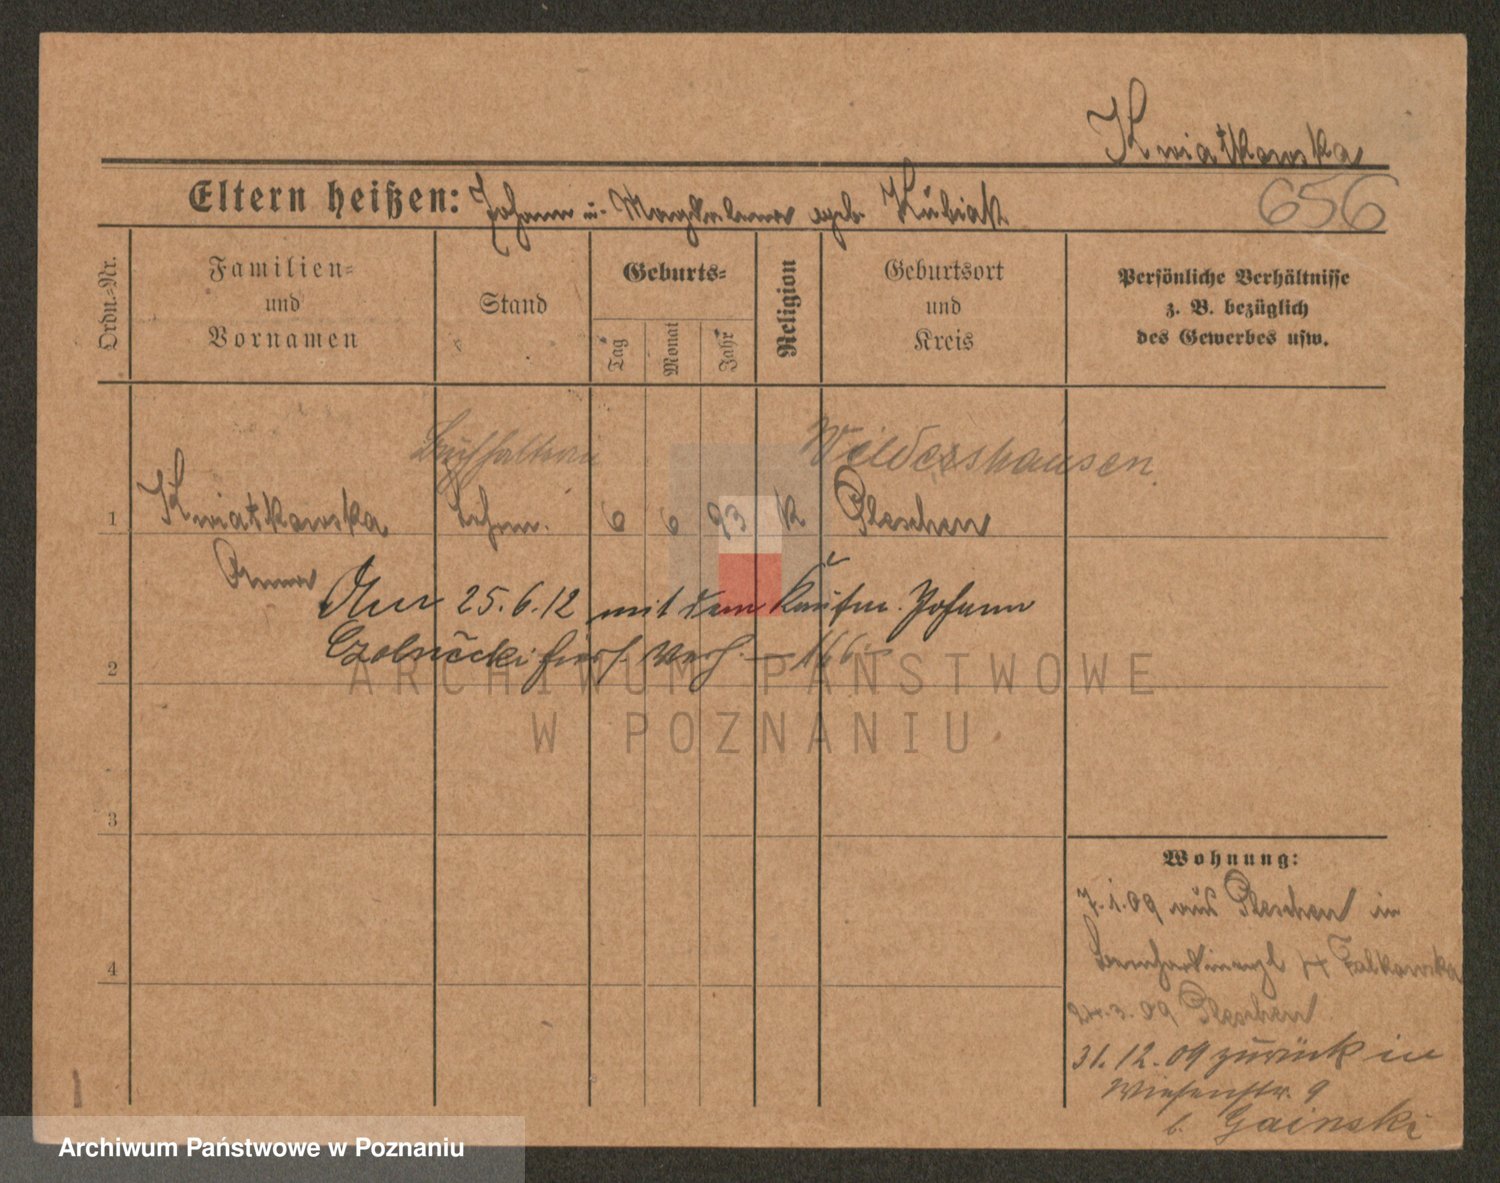 Kwiatkowska
Eltern heißen: Johann u. Magdalena geb. Kubiak
656
Ordn.-Nr.
Familien-
und
Vornamen
Stand
Geburts-
Tag
Monat
Jahr
Religion
Geburtsort
und
Kreis
Persönliche Verhältnisse
z. B. bezüglich
des Gewerbes usw.
Buchhalterin
Wildershausen
1 Kwiatkowska 6 6 93 K Pleschen
Anna
Am 25.6.12 mit dem Kaufm. Johann
hier
2
3
4
Wohnung:
7.1.09 aus Pleschen in
4 Falkowska
24.3.09 Pleschen
31.12.09 zurück in
Wiesenstr. 9
b. Gainski
1
ARCHIWUM PAŃSTWOWE
W POZNANIU
Archiwum Państwowe w Poznaniu